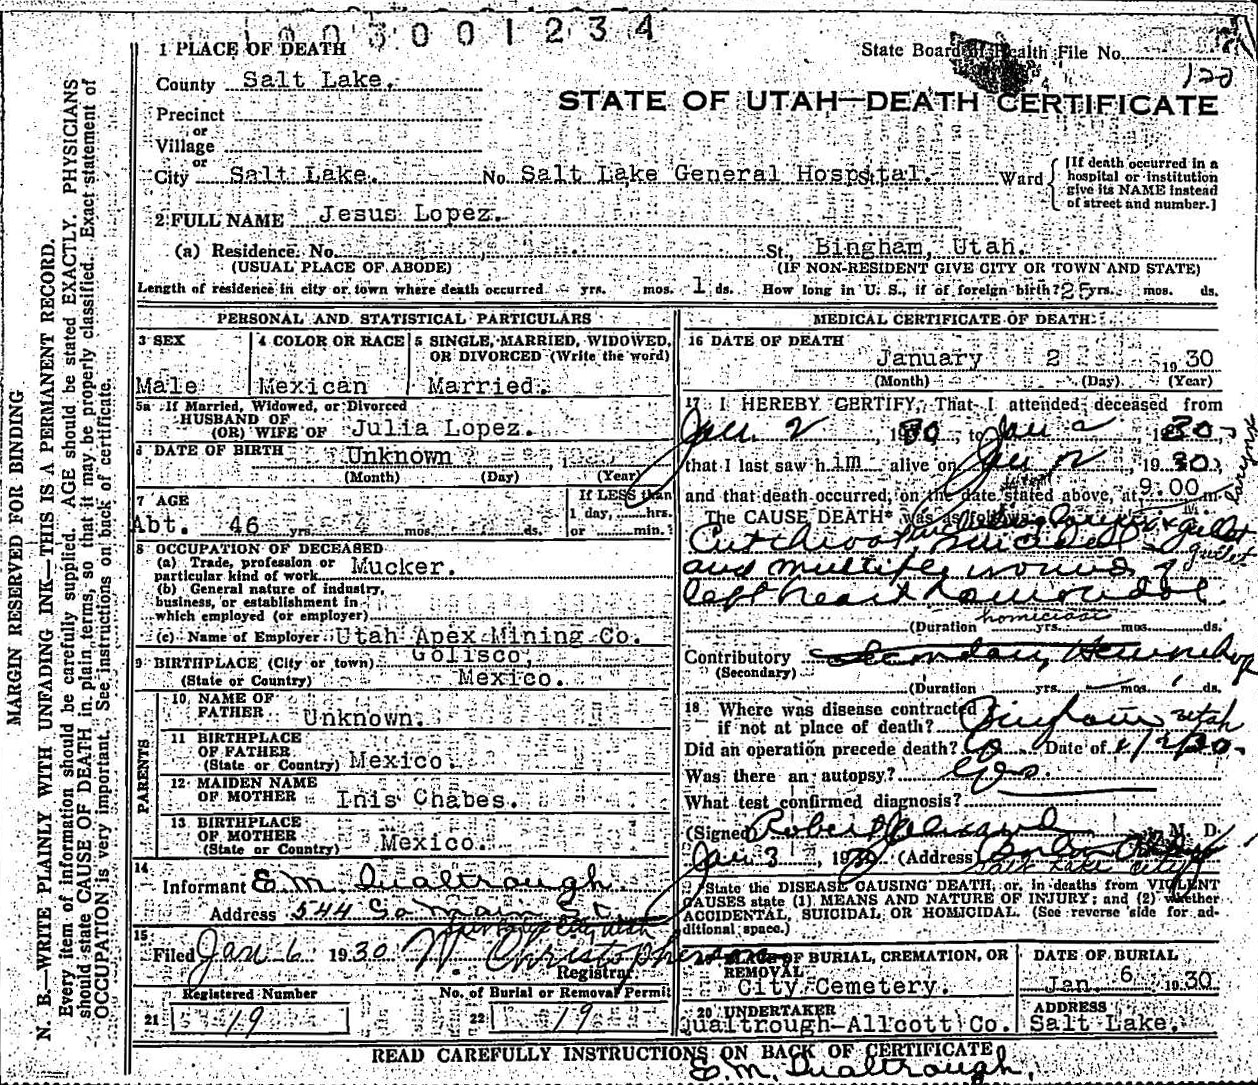 003001234
1 PLACE OF DEATH
State Board of Health File No.
122
County Salt Lake.
STATE OF UTAH—DEATH CERTIFICATE
Precinct
or
Village
or
City Salt Lake. No. Salt Lake General Hospital. Ward
[If death occurred in a hospital or institution give its NAME instead of street and number.]
2 FULL NAME Jesus Lopez.
(a) Residence. No. St., Bingham, Utah.
(USUAL PLACE OF ABODE) (IF NON-RESIDENT GIVE CITY OR TOWN AND STATE)
Length of residence in city or town where death occurred yrs. mos. 1 ds. How long in U. S., if of foreign birth? 25 yrs. mos. ds.
PERSONAL AND STATISTICAL PARTICULARS
3 SEX
Male
4 COLOR OR RACE
Mexican
5 SINGLE, MARRIED, WIDOWED, OR DIVORCED (Write the word)
Married.
5a If Married, Widowed, or Divorced
HUSBAND OF
(OR) WIFE OF Julia Lopez.
6 DATE OF BIRTH Unknown , 1
(Month) (Day) (Year)
7 AGE
Abt. 46 yrs. mos. ds.
If LESS than
1 day, hrs.
or min.?
8 OCCUPATION OF DECEASED
(a) Trade, profession or
particular kind of work Mucker.
(b) General nature of industry,
business, or establishment in
which employed (or employer)
(c) Name of Employer Utah Apex Mining Co.
9 BIRTHPLACE (City or town) Golisco,
(State or Country) Mexico.
PARENTS
10 NAME OF
FATHER Unknown.
11 BIRTHPLACE
OF FATHER
(State or Country) Mexico.
12 MAIDEN NAME
OF MOTHER Inis Chabes.
13 BIRTHPLACE
OF MOTHER
(State or Country) Mexico.
14
Informant E.M. Qualtrough.
Address 544 So Main St.
15
Filed Jan 6 1930 W. Christopherson
Registrar
Registered Number
21 19
No. of Burial or Removal Permit
22 19
MEDICAL CERTIFICATE OF DEATH
16 DATE OF DEATH
January 2 1930
(Month) (Day) (Year)
17 I HEREBY CERTIFY, That I attended deceased from
Jan 2, 1930, to Jan 2, 1930
that I last saw him alive on Jan 2, 1930,
and that death occurred, on the date stated above, at 9.00 m.
The CAUSE DEATH* was as follows:
Cut throat
and multiple wounds of
left heart
homicide
(Duration yrs. mos. ds.
Contributory
(Secondary)
(Duration yrs. mos. ds.
18 Where was disease contracted
if not at place of death? Bingham Utah
Did an operation precede death? Date of 1/2/30.
Was there an autopsy? Yes.
What test confirmed diagnosis?
(Signed) Robert M. D.
Jan 3, 1930 (Address)
Salt Lake City
* State the DISEASE CAUSING DEATH, or, in deaths from VIOLENT
CAUSES state (1) MEANS AND NATURE OF INJURY; and (2) whether
ACCIDENTAL, SUICIDAL OR HOMICIDAL. (See reverse side for ad-
ditional space.)
19 PLACE OF BURIAL, CREMATION, OR
REMOVAL
City Cemetery.
DATE OF BURIAL
Jan. 6 1930
20 UNDERTAKER
Qualtrough-Allcott Co.
ADDRESS
Salt Lake.
READ CAREFULLY INSTRUCTIONS ON BACK OF CERTIFICATE
E.M. Qualtrough.
MARGIN RESERVED FOR BINDING
N. B.—WRITE PLAINLY WITH UNFADING INK—THIS IS A PERMANENT RECORD.
Every item of information should be carefully supplied. AGE should be stated EXACTLY. PHYSICIANS
should state CAUSE OF DEATH in plain terms, so that it may be properly classified. Exact statement of
OCCUPATION is very important. See instructions on back of certificate.